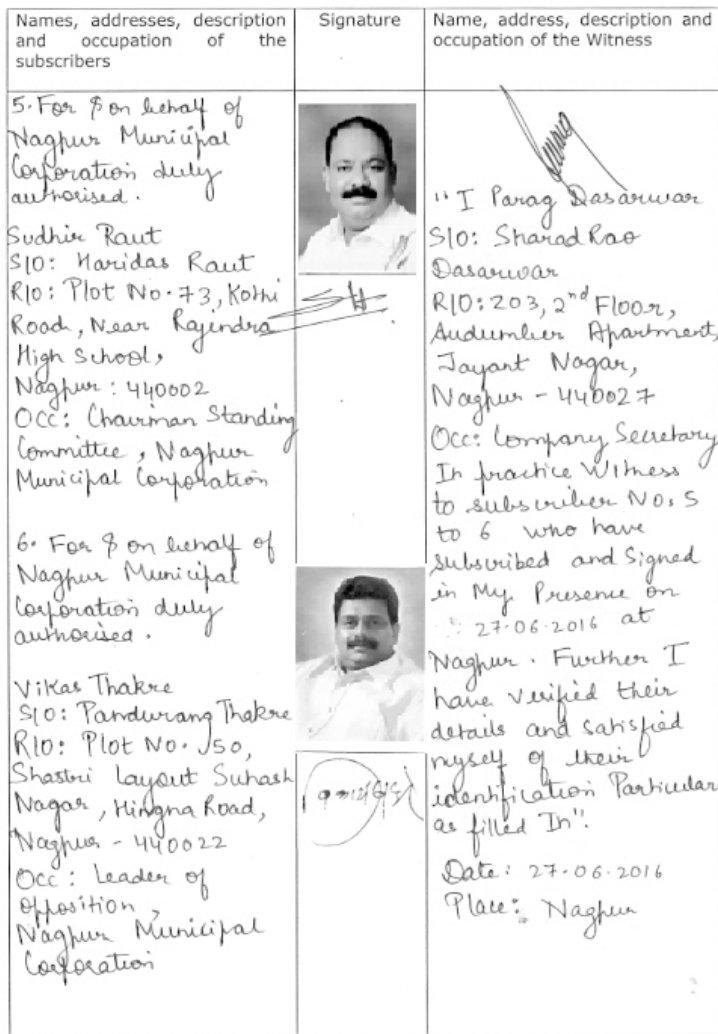 Names, addresses, description
and occupation of the
subscribers
Signature
Name, address, description and
occupation of the Witness
5. For & on behalf of
Nagpur Municipal
Corporation duly
authorised.
Sudhir Raut
S/O: Haridas Raut
R/O: Plot No. 73, Kothi
Road, Near Rajindra
High School,
Nagpur: 440002
OCC: Chairman Standing
Committee, Nagpur
Municipal Corporation
6. For & on behalf of
Nagpur Municipal
Corporation duly
authorised.
Vikas Thakre
S/O: Pandurang Thakre
R/O: Plot No. 150,
Shastri Layout Suhash
Nagar, Hingna Road,
Nagpur - 440022
OCC: Leader of
opposition,
Nagpur Municipal
Corporation
"I Parag Dasarwar
S/O: Sharad Rao
Dasarwar
R/O: 203, 2nd Floor,
Audumber Apartment,
Jayant Nagar,
Nagpur - 440027
Occ: Company Secretary
In practice Witness
to subscriber No. 5
to 6 who have
subscribed and Signed
in My Presence on
27-06-2016 at
Nagpur. Further I
have verified their
details and satisfied
myself of their
identification Particular
as filled In".
Date: 27-06-2016
Place: Nagpur